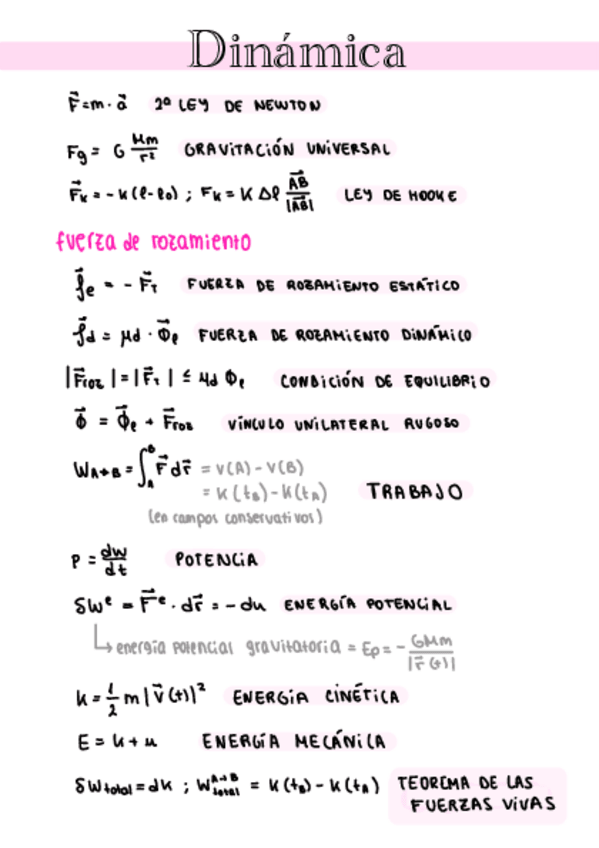 Dinámica
F⃗ = m · a⃗ 2ª LEY DE NEWTON
Fg = G Mm/r² GRAVITACIÓN UNIVERSAL
F⃗k = -K(l-l0) ; Fk = K Δl AB⃗/|AB⃗| LEY DE HOOKE
fuerza de rozamiento
f⃗e = - F⃗T FUERZA DE ROZAMIENTO ESTÁTICO
f⃗d = μd · Φ⃗e FUERZA DE ROZAMIENTO DINÁMICO
|F⃗roz| = |F⃗T| ≤ μd Φe CONDICIÓN DE EQUILIBRIO
Φ⃗ = Φ⃗e + F⃗roz VÍNCULO UNILATERAL RUGOSO
WA→B = ∫_A^B F⃗ dr⃗ = V(A) - V(B)
= K(tB) - K(tA) TRABAJO
(en campos conservativos)
P = dW/dt POTENCIA
δWᵉ = F⃗ᵉ · dr⃗ = -du ENERGÍA POTENCIAL
↳ energía potencial gravitatoria = Ep = - GMm/|r⃗(t)|
K = 1/2 m |v⃗(t)|² ENERGÍA CINÉTICA
E = K + u ENERGÍA MECÁNICA
δWtotal = dK ; W_total^A→B = K(tB) - K(tA) TEOREMA DE LAS
FUERZAS VIVAS